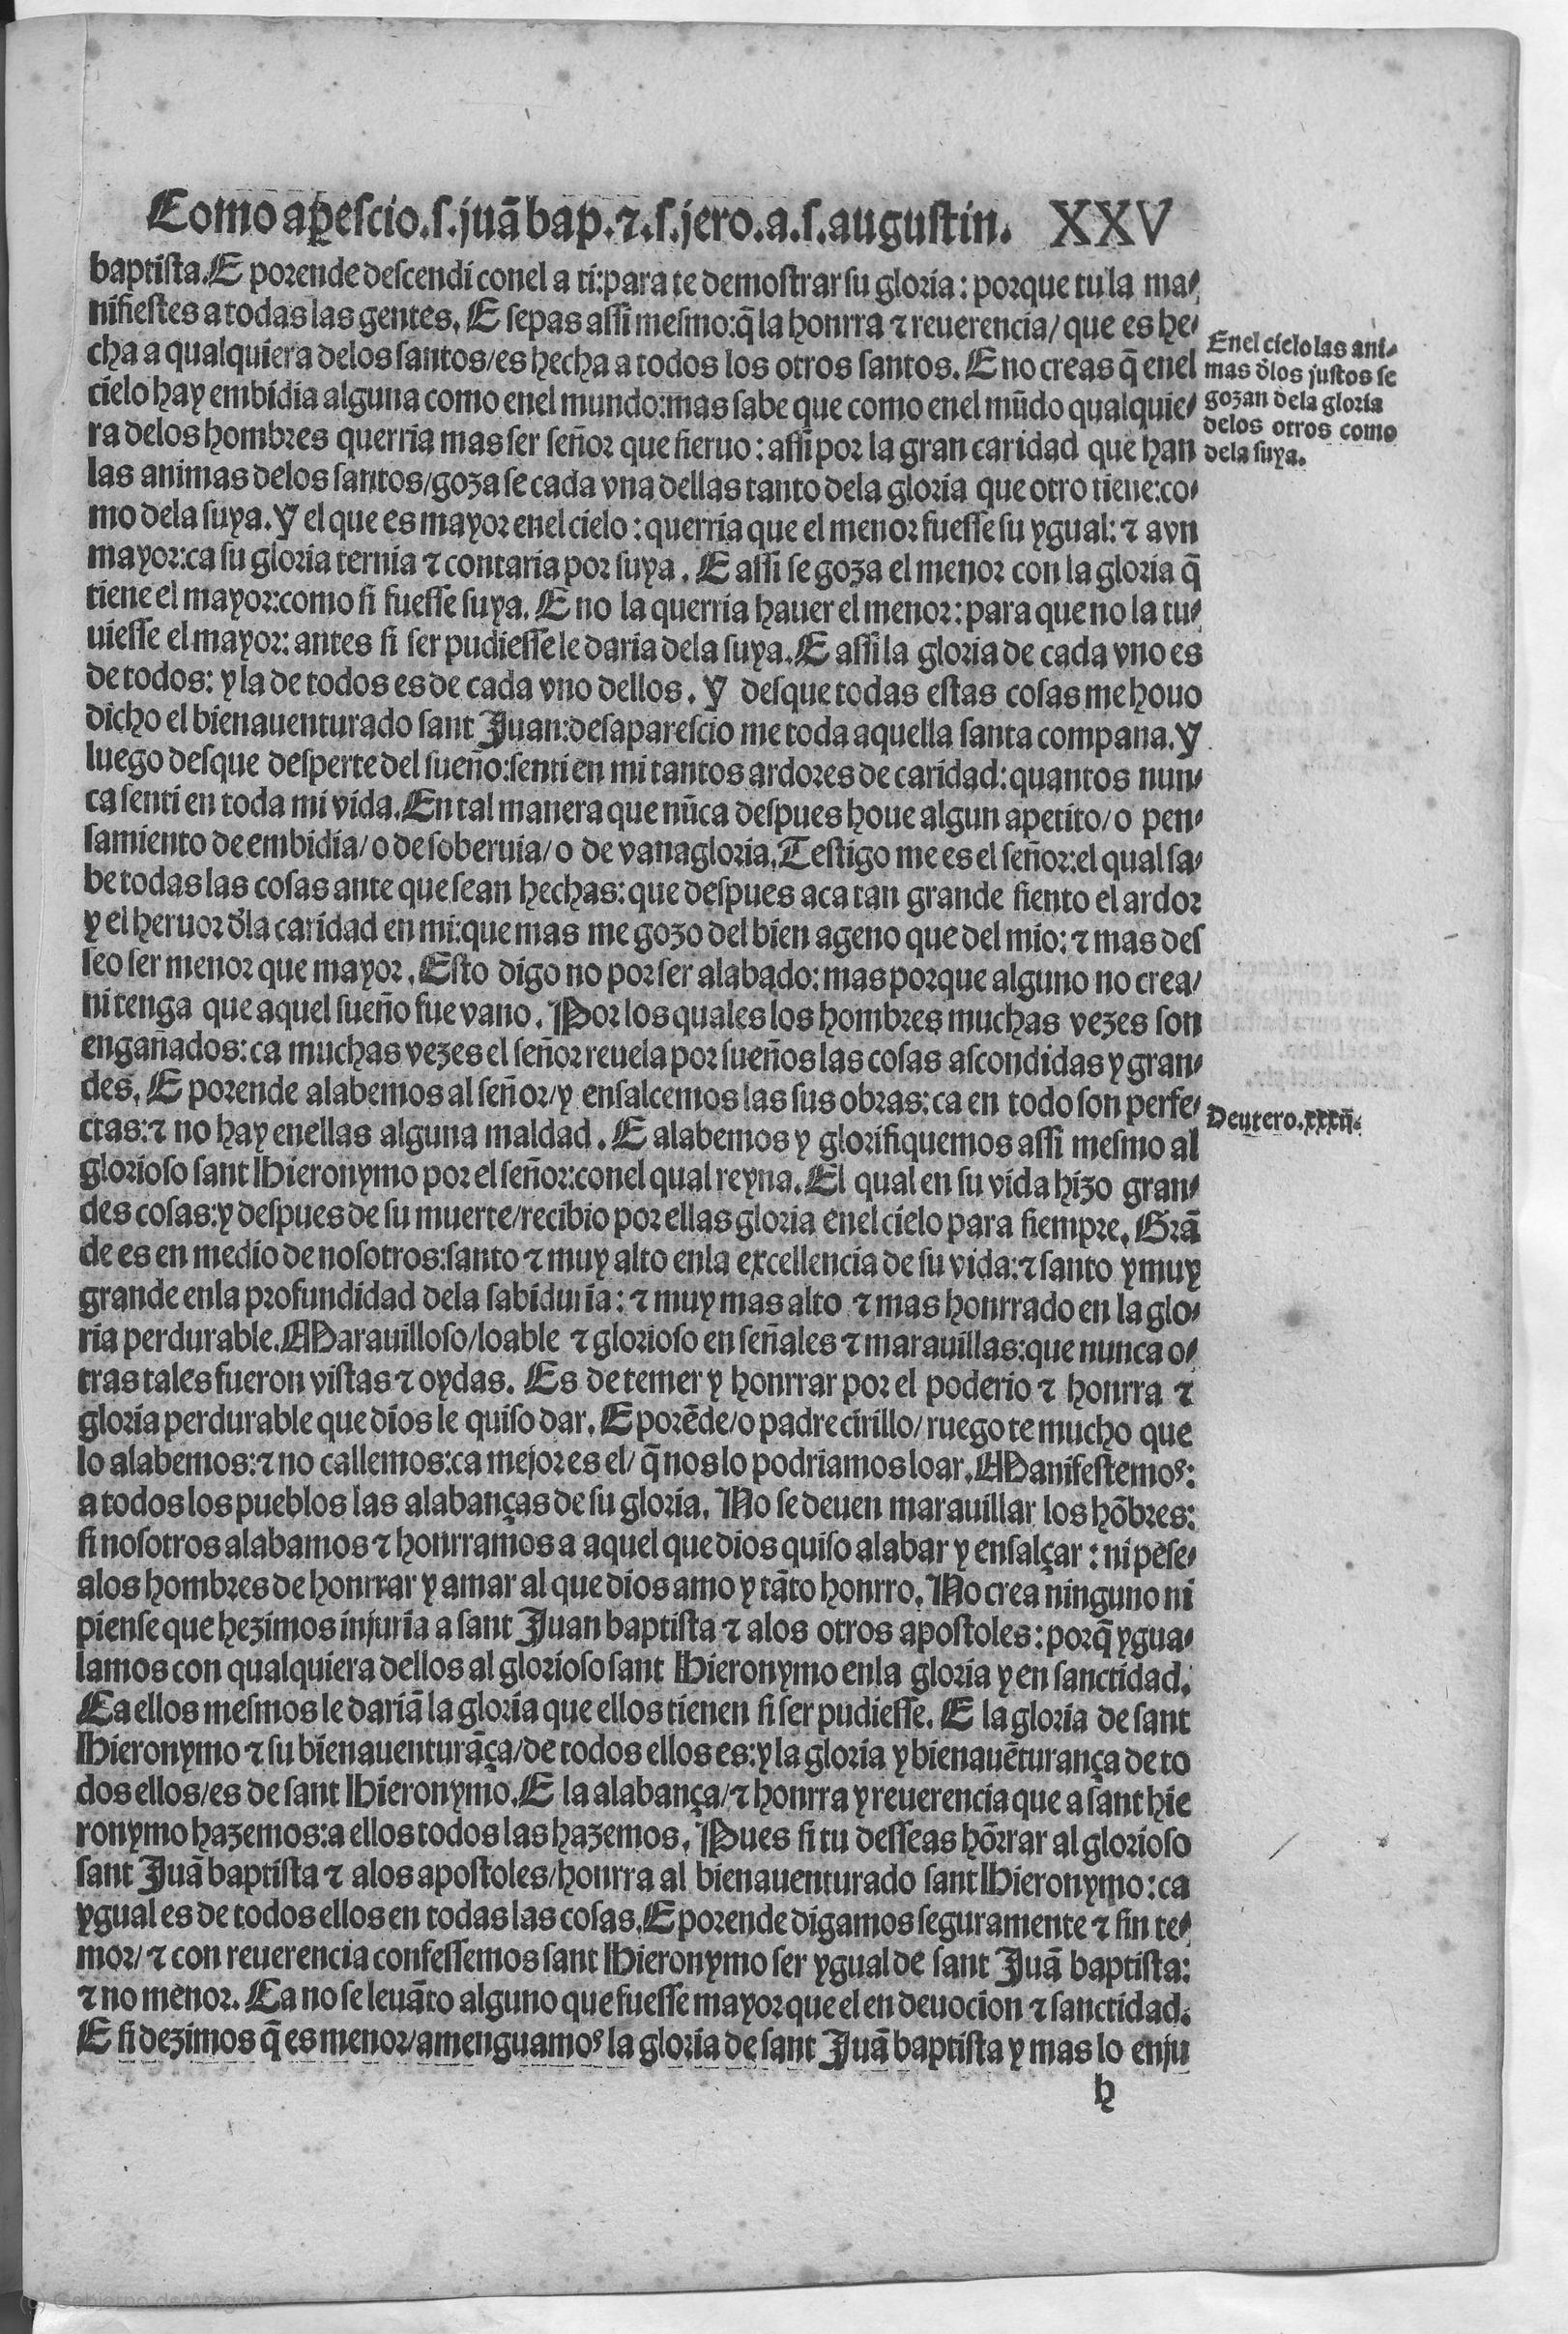 Como aꝑeſcio.ſ.juã bap.⁊.ſ.jero.a.ſ.auguſtin. XXV
baptiſta.E porende deſcendi conel a ti:para te demoſtrar ſu gloria: porque tu la ma-
nifieſtes a todas las gentes. E ſepas aſſi meſmo:q̃ la honrra ⁊ reuerencia/ que es he-
cha a qualquiera delos ſantos/es hecha a todos los otros ſantos. E no creas q̃ enel
cielo hay embidia alguna como enel mundo:mas ſabe que como enel mũdo qualquie-
ra delos hombres querria mas ſer ſeñor que ſieruo: aſſi por la gran caridad que han
las animas delos ſantos/goza ſe cada vna dellas tanto dela gloria que otro tiene:co-
mo dela ſuya. Y el que es mayor enel cielo: querria que el menor fueſſe ſu ygual: ⁊ avn
mayor:ca ſu gloria ternia ⁊ contaria por ſuya. E aſſi ſe goza el menor con la gloria q̃
tiene el mayor:como ſi fueſſe ſuya. E no la querria hauer el menor: para que no la tu-
uieſſe el mayor: antes ſi ſer pudieſſe le daria dela ſuya. E aſſi la gloria de cada vno es
de todos: y la de todos es de cada vno dellos. Y deſque todas eſtas coſas me houo
dicho el bienauenturado ſant Juan:deſapareſcio me toda aquella ſanta compana. Y
luego deſque deſperte del ſueño:ſenti en mi tantos ardores de caridad: quantos nun-
ca ſenti en toda mi vida. En tal manera que nũca deſpues houe algun apetito/o pen-
ſamiento de embidia/ o de ſoberuia/ o de vanagloria. Teſtigo me es el ſeñor:el qual ſa-
be todas las coſas ante que ſean hechas: que deſpues aca tan grande ſiento el ardor
y el heruor d̓la caridad en mi:que mas me gozo del bien ageno que del mio: ⁊ mas deſ
ſeo ſer menor que mayor. Eſto digo no por ſer alabado: mas porque alguno no crea/
ni tenga que aquel ſueño fue vano. Por los quales los hombres muchas vezes ſon
engañados: ca muchas vezes el ſeñor reuela por ſueños las coſas aſcondidas y gran-
des. E porende alabemos al ſeñor/y enſalcemos las ſus obras: ca en todo ſon perfe-
ctas:⁊ no hay enellas alguna maldad. E alabemos y glorifiquemos aſſi meſmo al
glorioſo ſant Hieronymo por el ſeñor:conel qual reyna. El qual en ſu vida hizo gran-
des coſas:y deſpues de ſu muerte/recibio por ellas gloria enel cielo para ſiempre. Grã
de es en medio de noſotros:ſanto ⁊ muy alto enla excellencia de ſu vida:⁊ ſanto y muy
grande enla profundidad dela ſabiduria: ⁊ muy mas alto ⁊ mas honrrado en la glo-
ria perdurable. Marauilloſo/loable ⁊ glorioſo en ſeñales ⁊ marauillas:que nunca o-
tras tales fueron viſtas ⁊ oydas. Es de temer y honrrar por el poderio ⁊ honrra ⁊
gloria perdurable que dios le quiſo dar. E porẽde/o padre cirillo/ruego te mucho que
lo alabemos:⁊ no callemos:ca mejor es el/ q̃ nos lo podriamos loar. Manifeſtemoꝰ:
a todos los pueblos las alabanças de ſu gloria. No ſe deuen marauillar los hõbres:
ſi noſotros alabamos ⁊ honrramos a aquel que dios quiſo alabar y enſalçar: ni peſe-
alos hombres de honrrar y amar al que dios amo y tãto honrro. No crea ninguno ni
pienſe que hezimos injuria a ſant Juan baptiſta ⁊ alos otros apoſtoles: porq̃ ygua-
lamos con qualquiera dellos al glorioſo ſant Hieronymo enla gloria y en ſanctidad.
Ca ellos meſmos le dariã la gloria que ellos tienen ſi ſer pudieſſe. E la gloria de ſant
Hieronymo ⁊ ſu bienauenturãça/de todos ellos es:y la gloria y bienauẽturança de to
dos ellos/es de ſant Hieronymo. E la alabança/⁊ honrra y reuerencia que a ſant hie
ronymo hazemos:a ellos todos las hazemos. Pues ſi tu deſſeas hõrrar al glorioſo
ſant Juã baptiſta ⁊ alos apoſtoles/honrra al bienauenturado ſant Hieronymo: ca
ygual es de todos ellos en todas las coſas. E porende digamos ſeguramente ⁊ ſin te-
mor/ ⁊ con reuerencia confeſſemos ſant Hieronymo ſer ygual de ſant Juã baptiſta:
⁊ no menor. Ca no ſe leuãto alguno que fueſſe mayor que el en deuocion ⁊ ſanctidad.
E ſi dezimos q̃ es menor/amenguamoꝰ la gloria de ſant Juã baptiſta y mas lo enju
h
Enel cielo las ani-
mas d̓los juſtos ſe
gozan dela gloria
delos otros como
dela ſuya.
Deutero.xxxij.
(c) Gobierno de Aragón